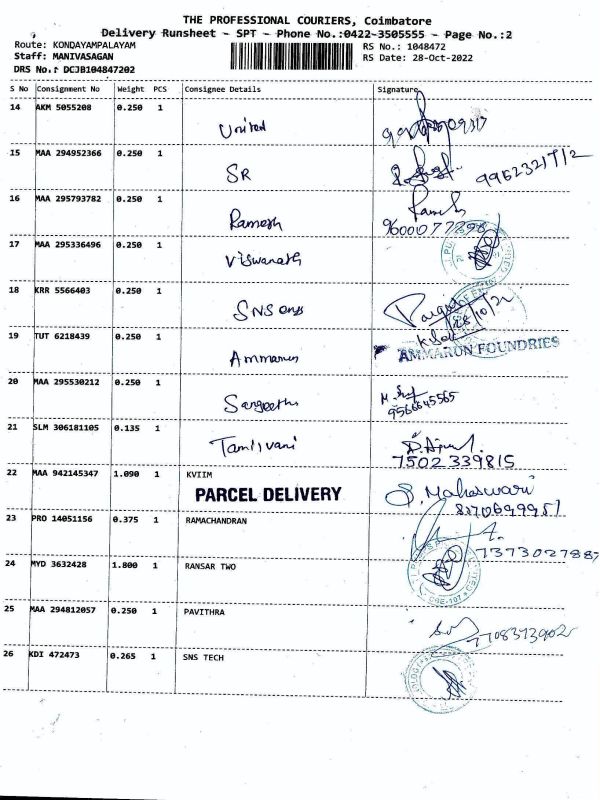 THE PROFESSIONAL COURIERS, Coimbatore
Delivery Runsheet - SPT - Phone No.:0422-3505555 - Page No.:2
Route: KONDAYAMPALAYAM RS No.: 1048472
Staff: MANIVASAGAN RS Date: 28-Oct-2022
DRS No.: DCJB104847202
S No Consignment No Weight PCS Consignee Details Signature
14 AKM 5055208 0.250 1
United
15 MAA 294952366 0.250 1
SR 9962321712
16 MAA 295793782 0.250 1
Ramesh 9600077898
17 MAA 295336496 0.250 1
Viswanath
18 KRR 5566403 0.250 1
SNS 28/10/22
19 TUT 6218439 0.250 1
AMMARON FOUNDRIES
20 MAA 295530212 0.250 1
Sangeetha
9566645565
21 SLM 306181105 0.135 1
Tamilvani
7502339815
22 MAA 942145347 1.090 1 KVIIM
PARCEL DELIVERY S. Maheswari
23 PRO 14051156 0.375 1 RAMACHANDRAN
7373027887
24 MYD 3632428 1.800 1 RANSAR TWO
25 MAA 294812057 0.250 1 PAVITHRA
26 KDI 472473 0.265 1 SNS TECH